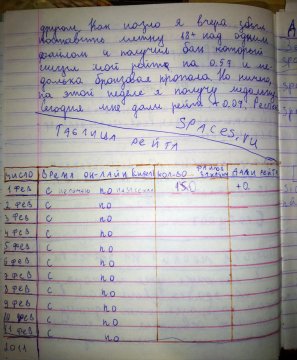 другом. Как позно я вчера забыл
поставить метку 18+ над одним
файлом и получил бан который
снизил мой рейто на 0.59 и ме-
далька бронзовая пропала. Но ничего,
на этой неделе я получу медальку,
сегодня мне дали рейта +0.09.
SPACES.RU
ТАБЛИЦА
РЕЙТА
ЧИСЛО ВРЕМЯ ОН-ЛАЙН КОЛ-ВО ФАЙЛОВ ДАЛИ РЕЙТА
1 ФЕВ С ПО 150 +0.
2 ФЕВ С ПО
3 ФЕВ С ПО
4 ФЕВ С ПО
5 ФЕВ С ПО
6 ФЕВ С ПО
7 ФЕВ С ПО
8 ФЕВ С ПО
9 ФЕВ С ПО
10 ФЕВ С ПО
11 ФЕВ С ПО
2011